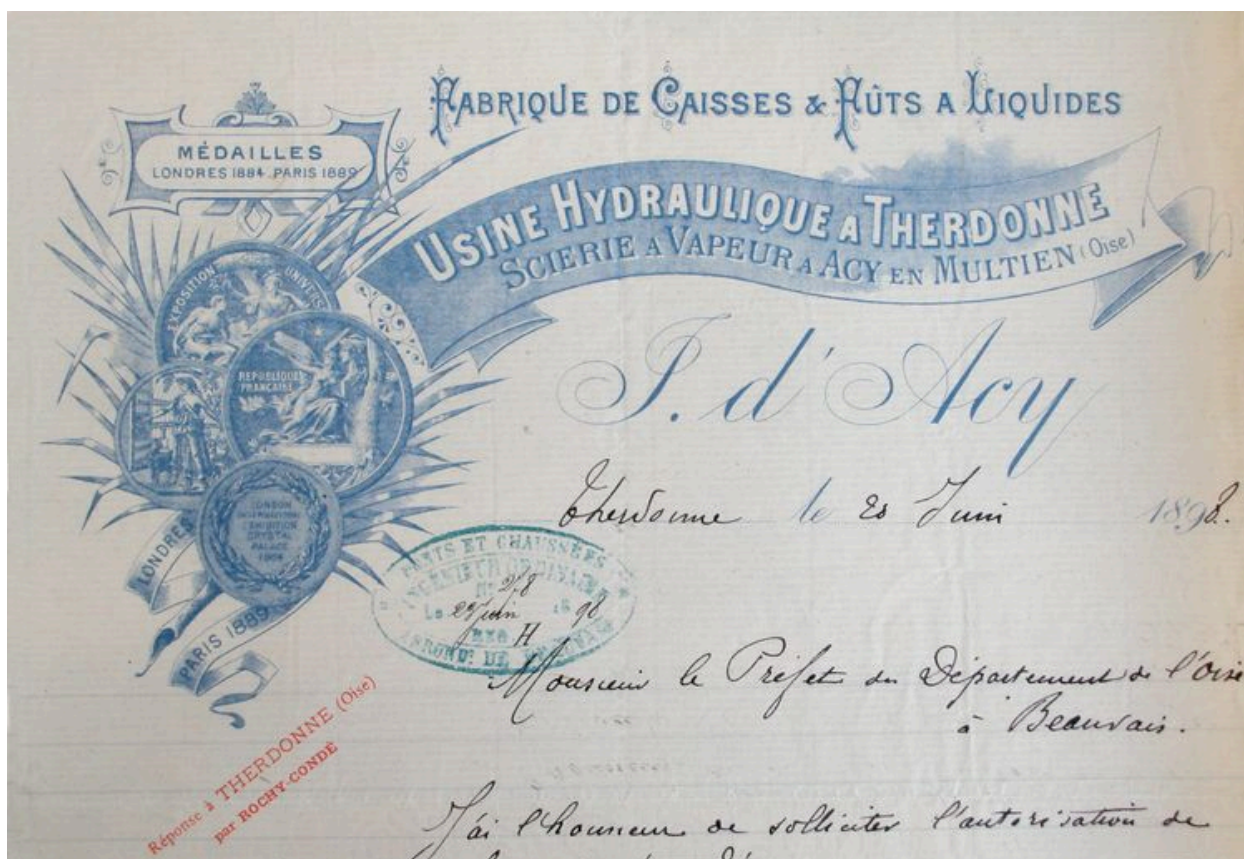 FABRIQUE DE CAISSES & FÛTS A LIQUIDES
MÉDAILLES
LONDRES 1884 PARIS 1889
USINE HYDRAULIQUE A THERDONNE
SCIERIE A VAPEUR A ACY EN MULTIEN (Oise)
EXPOSITION UNIVERS
REPUBLIQUE
FRANÇAISE
J. d'Acy
LONDON
INTERNATIONAL
EXHIBITION
CRYSTAL
PALACE
1884
LONDRES
PARIS 1889
Therdonne le 20 Juin 1898.
PONTS ET CHAUSSÉES
INGÉNIEUR ORDINAIRE
No 278
Le Juin 1898
H
ARRONDt DE BEAUVAIS
Monsieur le Préfet du Département de l'Oise
à Beauvais.
Réponse à THERDONNE (Oise)
par ROCHY-CONDÉ
J'ai l'honneur de solliciter l'autorisation de